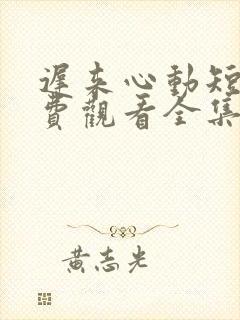 遲来心動短
費觀看全集
黃志光